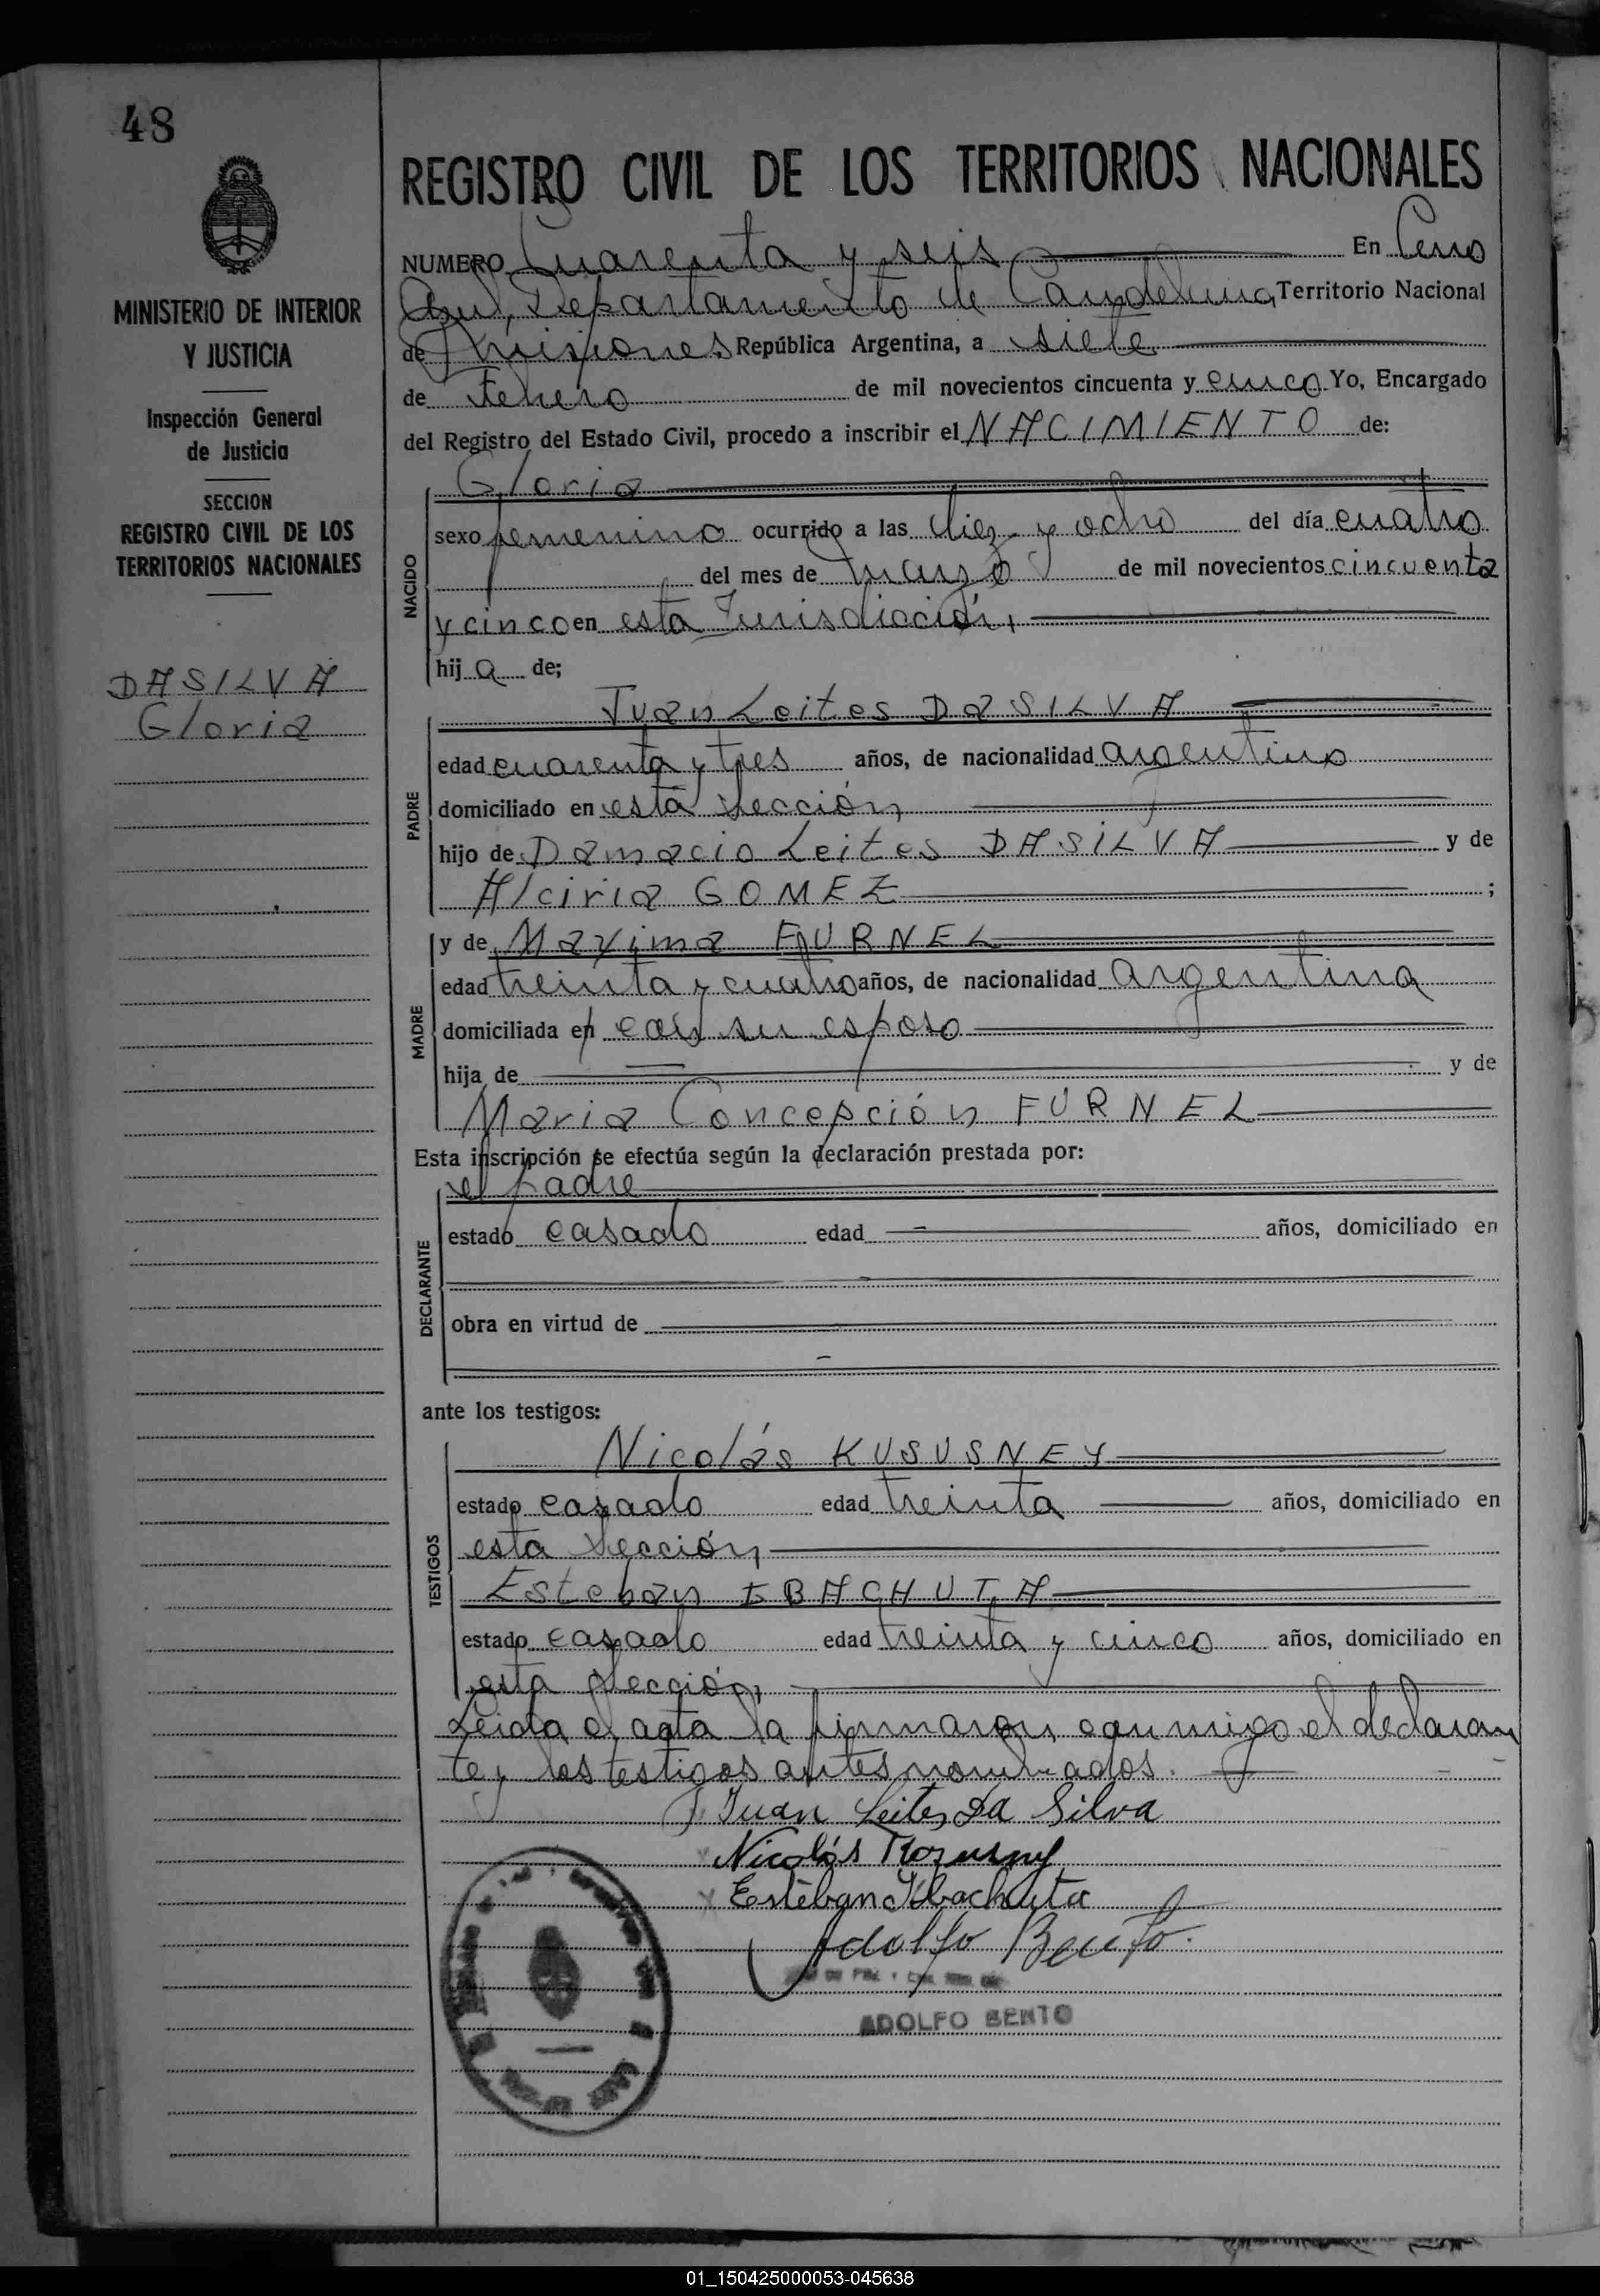 48
REGISTRO CIVIL DE LOS TERRITORIOS NACIONALES
MINISTERIO DE INTERIOR
Y JUSTICIA
Inspección General
de Justicia
SECCION
REGISTRO CIVIL DE LOS
TERRITORIOS NACIONALES
DASILVA
Gloria
NUMERO Cuarenta y seis En Cerro
Azul, Departamento de Candelaria, Territorio Nacional
de Misiones República Argentina, a siete
de Febrero de mil novecientos cincuenta y cinco Yo, Encargado
del Registro del Estado Civil, procedo a inscribir el NACIMIENTO de:
NACIDO
Gloria
sexo femenino ocurrido a las diez y ocho del día cuatro
del mes de marzo de mil novecientos cincuenta
y cinco en esta Jurisdicción,
hij a de;
PADRE
Juan Leites DaSILVA
edad cuarenta y tres años, de nacionalidad argentino
domiciliado en esta sección,
hijo de Damacio Leites DASILVA y de
Alciria GOMEZ ;
MADRE
y de Maxima FURNEL
edad treinta y cuatro años, de nacionalidad argentina
domiciliada en con su esposo
hija de y de
Maria Concepción FURNEL
Esta inscripción se efectúa según la declaración prestada por:
DECLARANTE
el padre
estado casado edad años, domiciliado en
obra en virtud de
ante los testigos:
TESTIGOS
Nicolás KUSUSNEY
estado casado edad treinta años, domiciliado en
esta sección,
Esteban IBACHUTA
estado casado edad treinta y cinco años, domiciliado en
esta sección,
Leida el acta la firmaron conmigo el declaran
te y los testigos antes nombrados.
Juan Leites Da Silva
Nicolás
Esteban Ibachuta
Adolfo Bento
ADOLFO BENTO
01_150425000053-045638